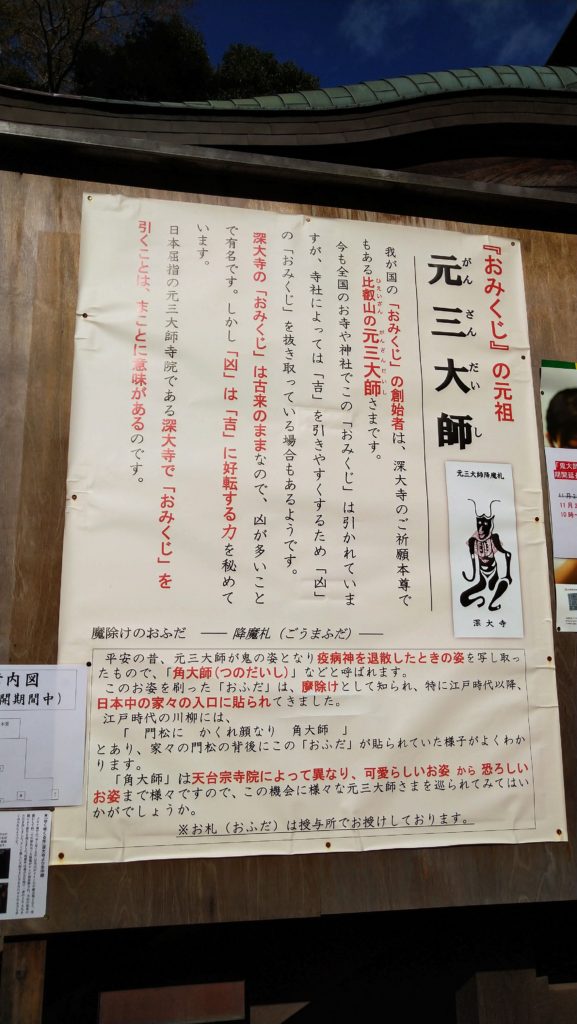 『おみくじ』の元祖
元三大師
がんさんだいし
我が国の「おみくじ」の創始者は、深大寺のご祈願本尊で
もある比叡山の元三大師さまです。
ひえいざん がんざんだいし
今も全国のお寺や神社でこの「おみくじ」は引かれていま
すが、寺社によっては「吉」を引きやすくするため「凶」
の「おみくじ」を抜き取っている場合もあるようです。
深大寺の「おみくじ」は古来のままなので、凶が多いこと
で有名です。しかし「凶」は「吉」に好転する力を秘めて
います。
日本屈指の元三大師寺院である深大寺で「おみくじ」を
引くことは、まことに意味があるのです。
元三大師降魔札
深大寺
魔除けのおふだ ― 降魔札（ごうまふだ）―
平安の昔、元三大師が鬼の姿となり疫病神を退散したときの姿を写し取っ
たもので、「角大師（つのだいし）」などと呼ばれます。
このお姿を刷った「おふだ」は、魔除けとして知られ、特に江戸時代以降、
日本中の家々の入口に貼られてきました。
江戸時代の川柳には、
「 門松に かくれ顔なり 角大師 」
とあり、家々の門松の背後にこの「おふだ」が貼られていた様子がよくわか
ります。
「角大師」は天台宗寺院によって異なり、可愛らしいお姿 から 恐ろしい
お姿まで様々ですので、この機会に様々な元三大師さまを巡られてみてはい
かがでしょうか。
※お札（おふだ）は授与所でお授けしております。
内図
開期間中）
「鬼大師
期間延